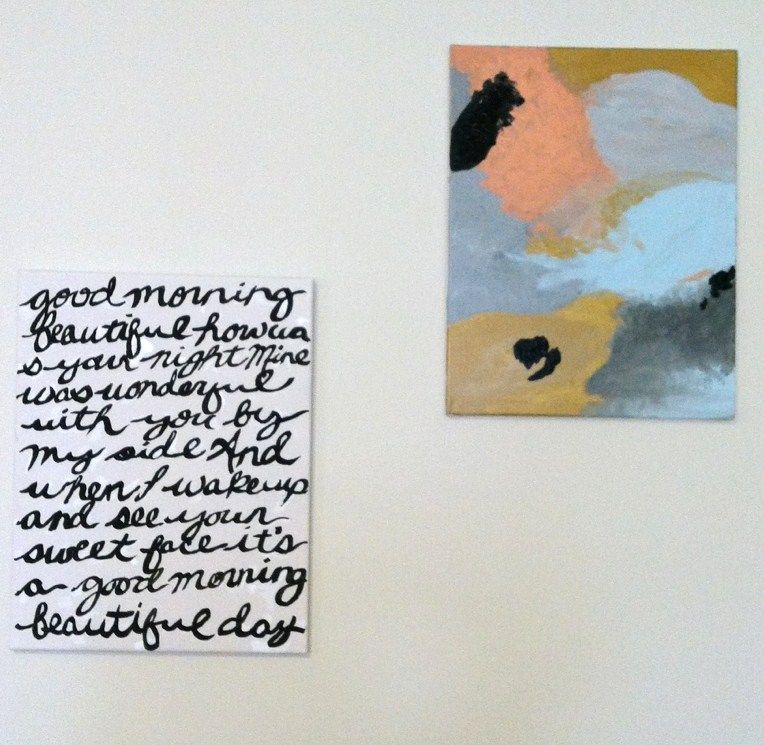 good morning
beautiful how wa
s your night Mine
was wonderful
with you by
my side And
when I wake up
and see your
sweet face it's
a good morning
beautiful day